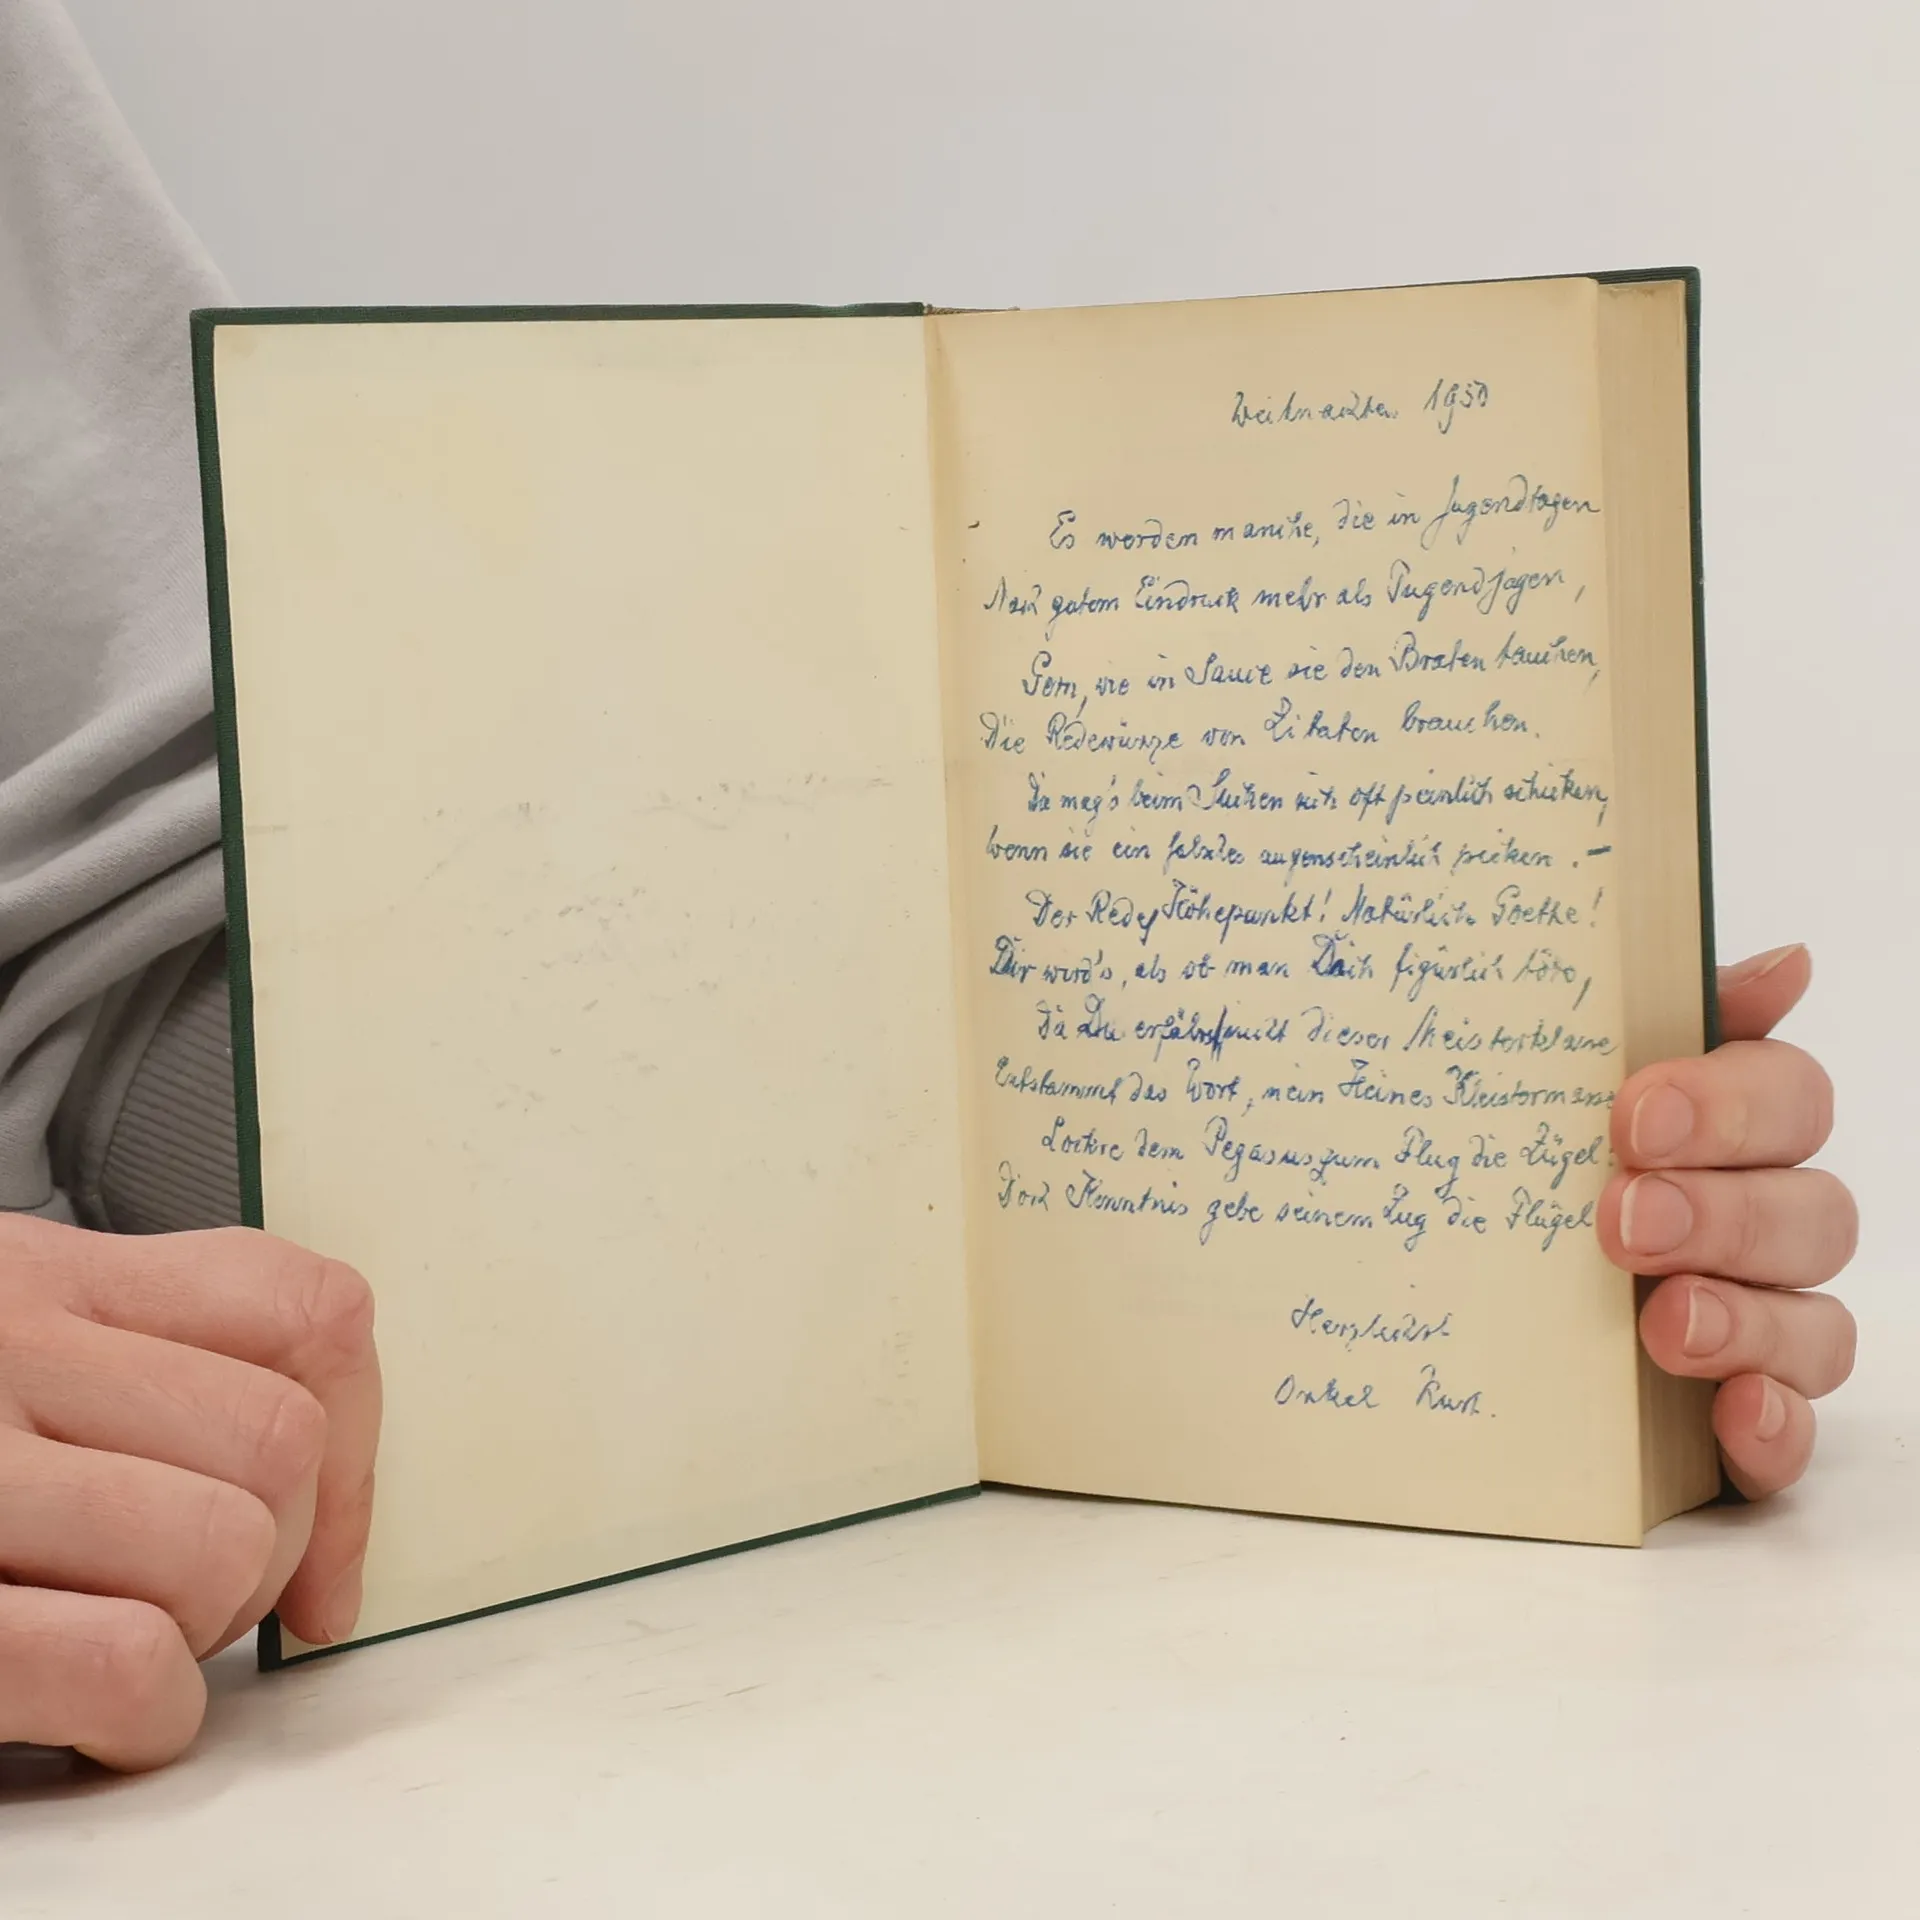 Weihnachten 1950
Es werden manche, die in Jugendtagen
Nach gutem Eindruck mehr als Tugend jagen,
Gern, wie in Sauce sie den Braten tauchen,
Die Redewürze von Zitaten brauchen.
Da mag's beim Suchen sich oft peinlich schicken,
wenn sie ein falsches augenscheinlich picken. –
Der Rede Höhepunkt! Natürlich Goethe!
Dir wird's, als ob man Dich figürlich töte,
Da Du erfährst, nicht dieser Meisterklause
Entstammt das Wort, nein Heines
Lockre dem Pegasus zum Flug die Zügel:
Doch Kenntnis gebe seinem Zug die Flügel
Herzlichst
Onkel Kurt.